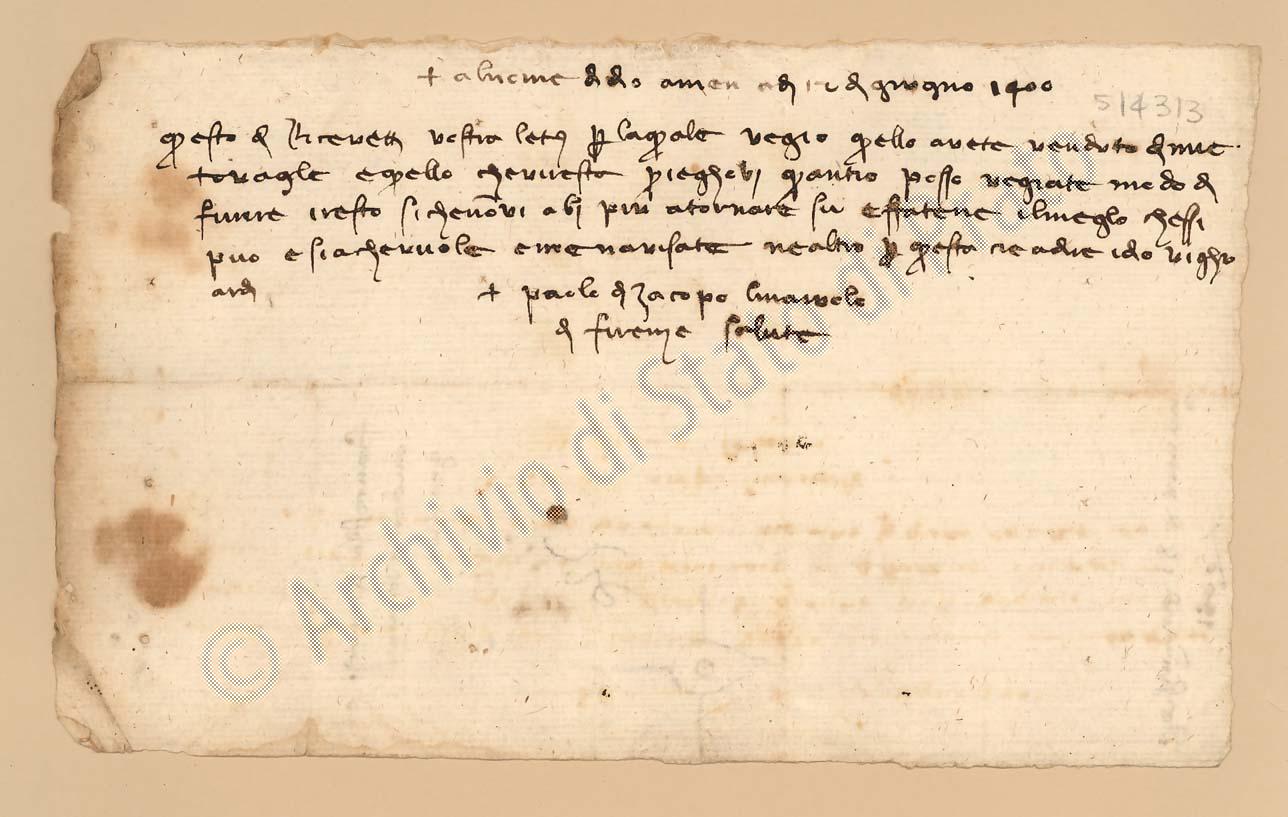 + al nome di dio amen adì 12 di giugno 1400
5/43/3
questo dì Ricevetti vostra lettera per laquale vegio quello avete venduto di mie
tovagle e quello che vi resta prieghovi quanto posso vegiate modo di
finire i resto siche nonn vi abi più a tornare su e ffatene il meglo che ssi
può e sia che vuole e me n avisate ne altro per questa idio vi ghu
ardi
+ paolo di Iacopo linaiuolo
di firenze salute
© Archivio di Stato di Prato